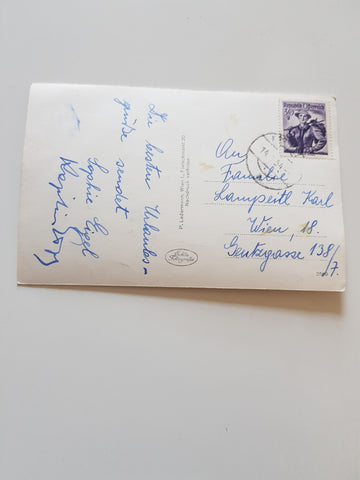 Die besten Urlaubs-
grüße sendet
Sophie Engel
Republik Österreich
An
Familie
Lampeitl Karl
Wien, 18.
Gentzgasse 138/
7.
P. Ledermann, Wien I., Fleischmarkt 20
Nachdruck verboten